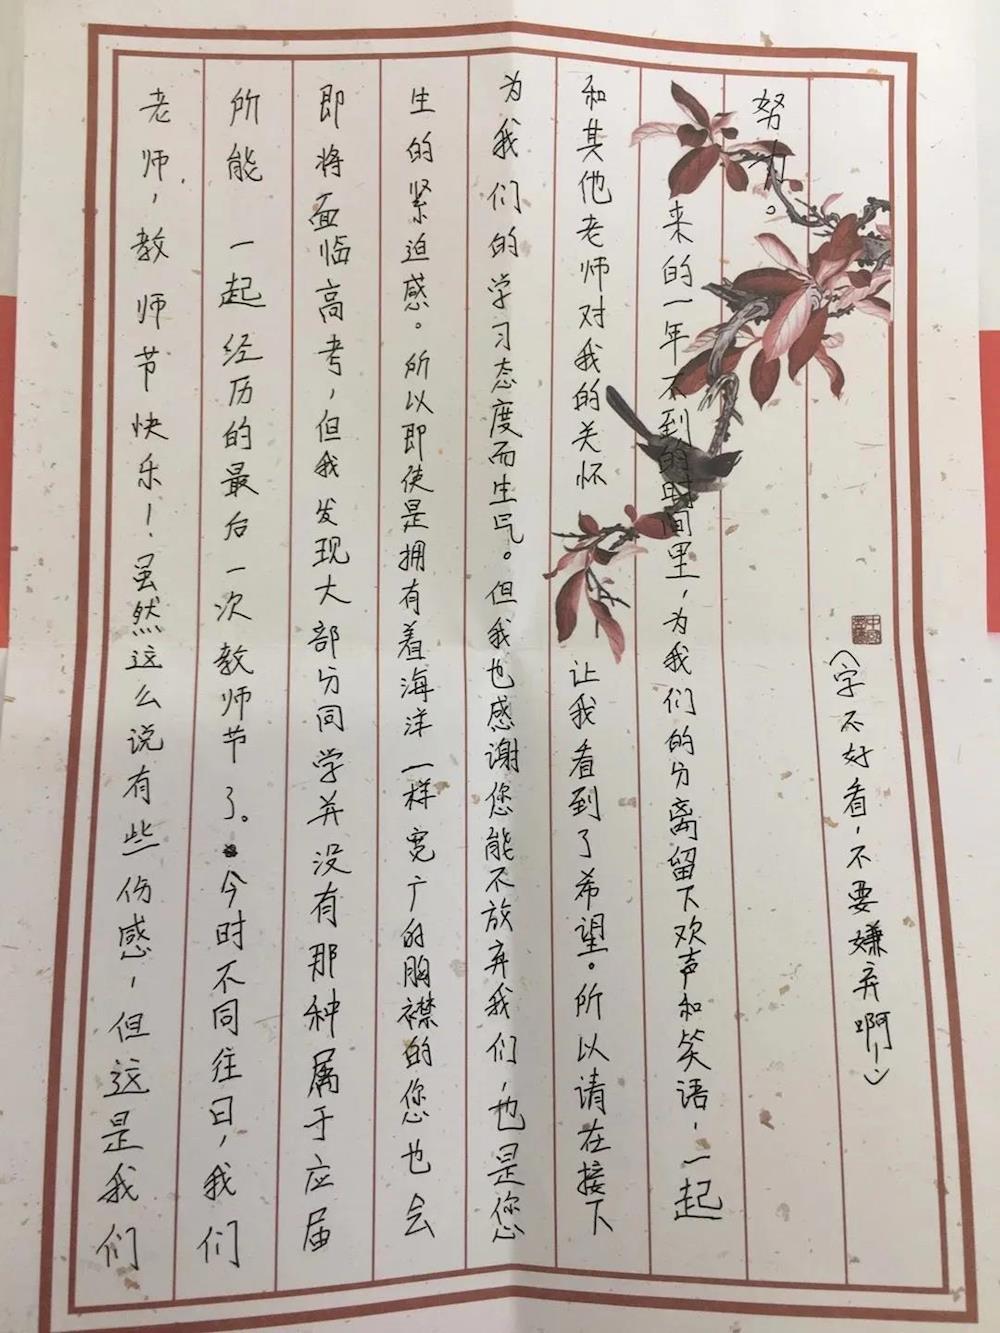 老师，教师节快乐！虽然这么说有些伤感，但这是我们
所能一起经历的最后一次教师节了。今时不同往日，我们
即将面临高考，但我发现大部分同学并没有那种属于应届
生的紧迫感。所以即使是拥有着海洋一样宽广的胸襟的您也会
为我们的学习态度而生气。但我也感谢您能不放弃我们，也是您
和其他老师对我的关怀让我看到了希望。所以请在接下
来的一年不到的时间里，为我们的分离留下欢声和笑语，一起
努力。
（字不好看，不要嫌弃啊！：）